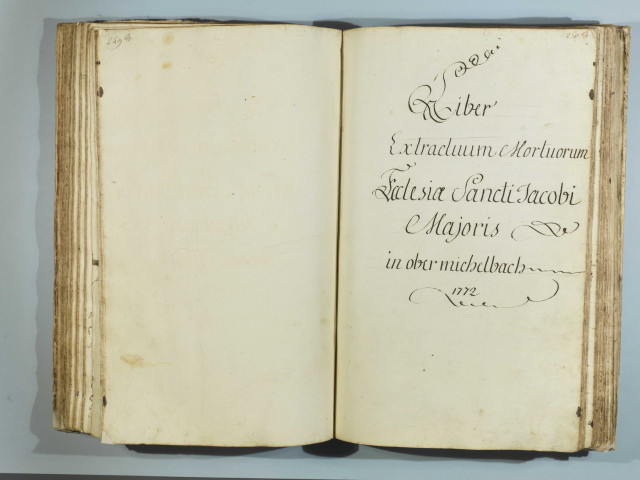 Liber
Extractuum Mortuorum
Ecclesiæ Sancti Jacobi
Majoris
in obermichelbach
1772